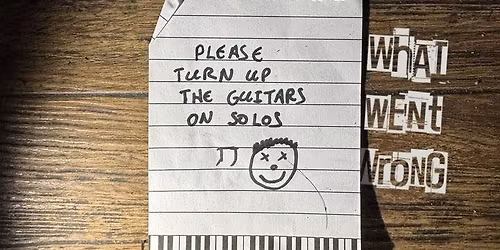 PLEASE
TURN UP
THE GUITARS
ON SOLOS
WhAT
WENt
WrONG